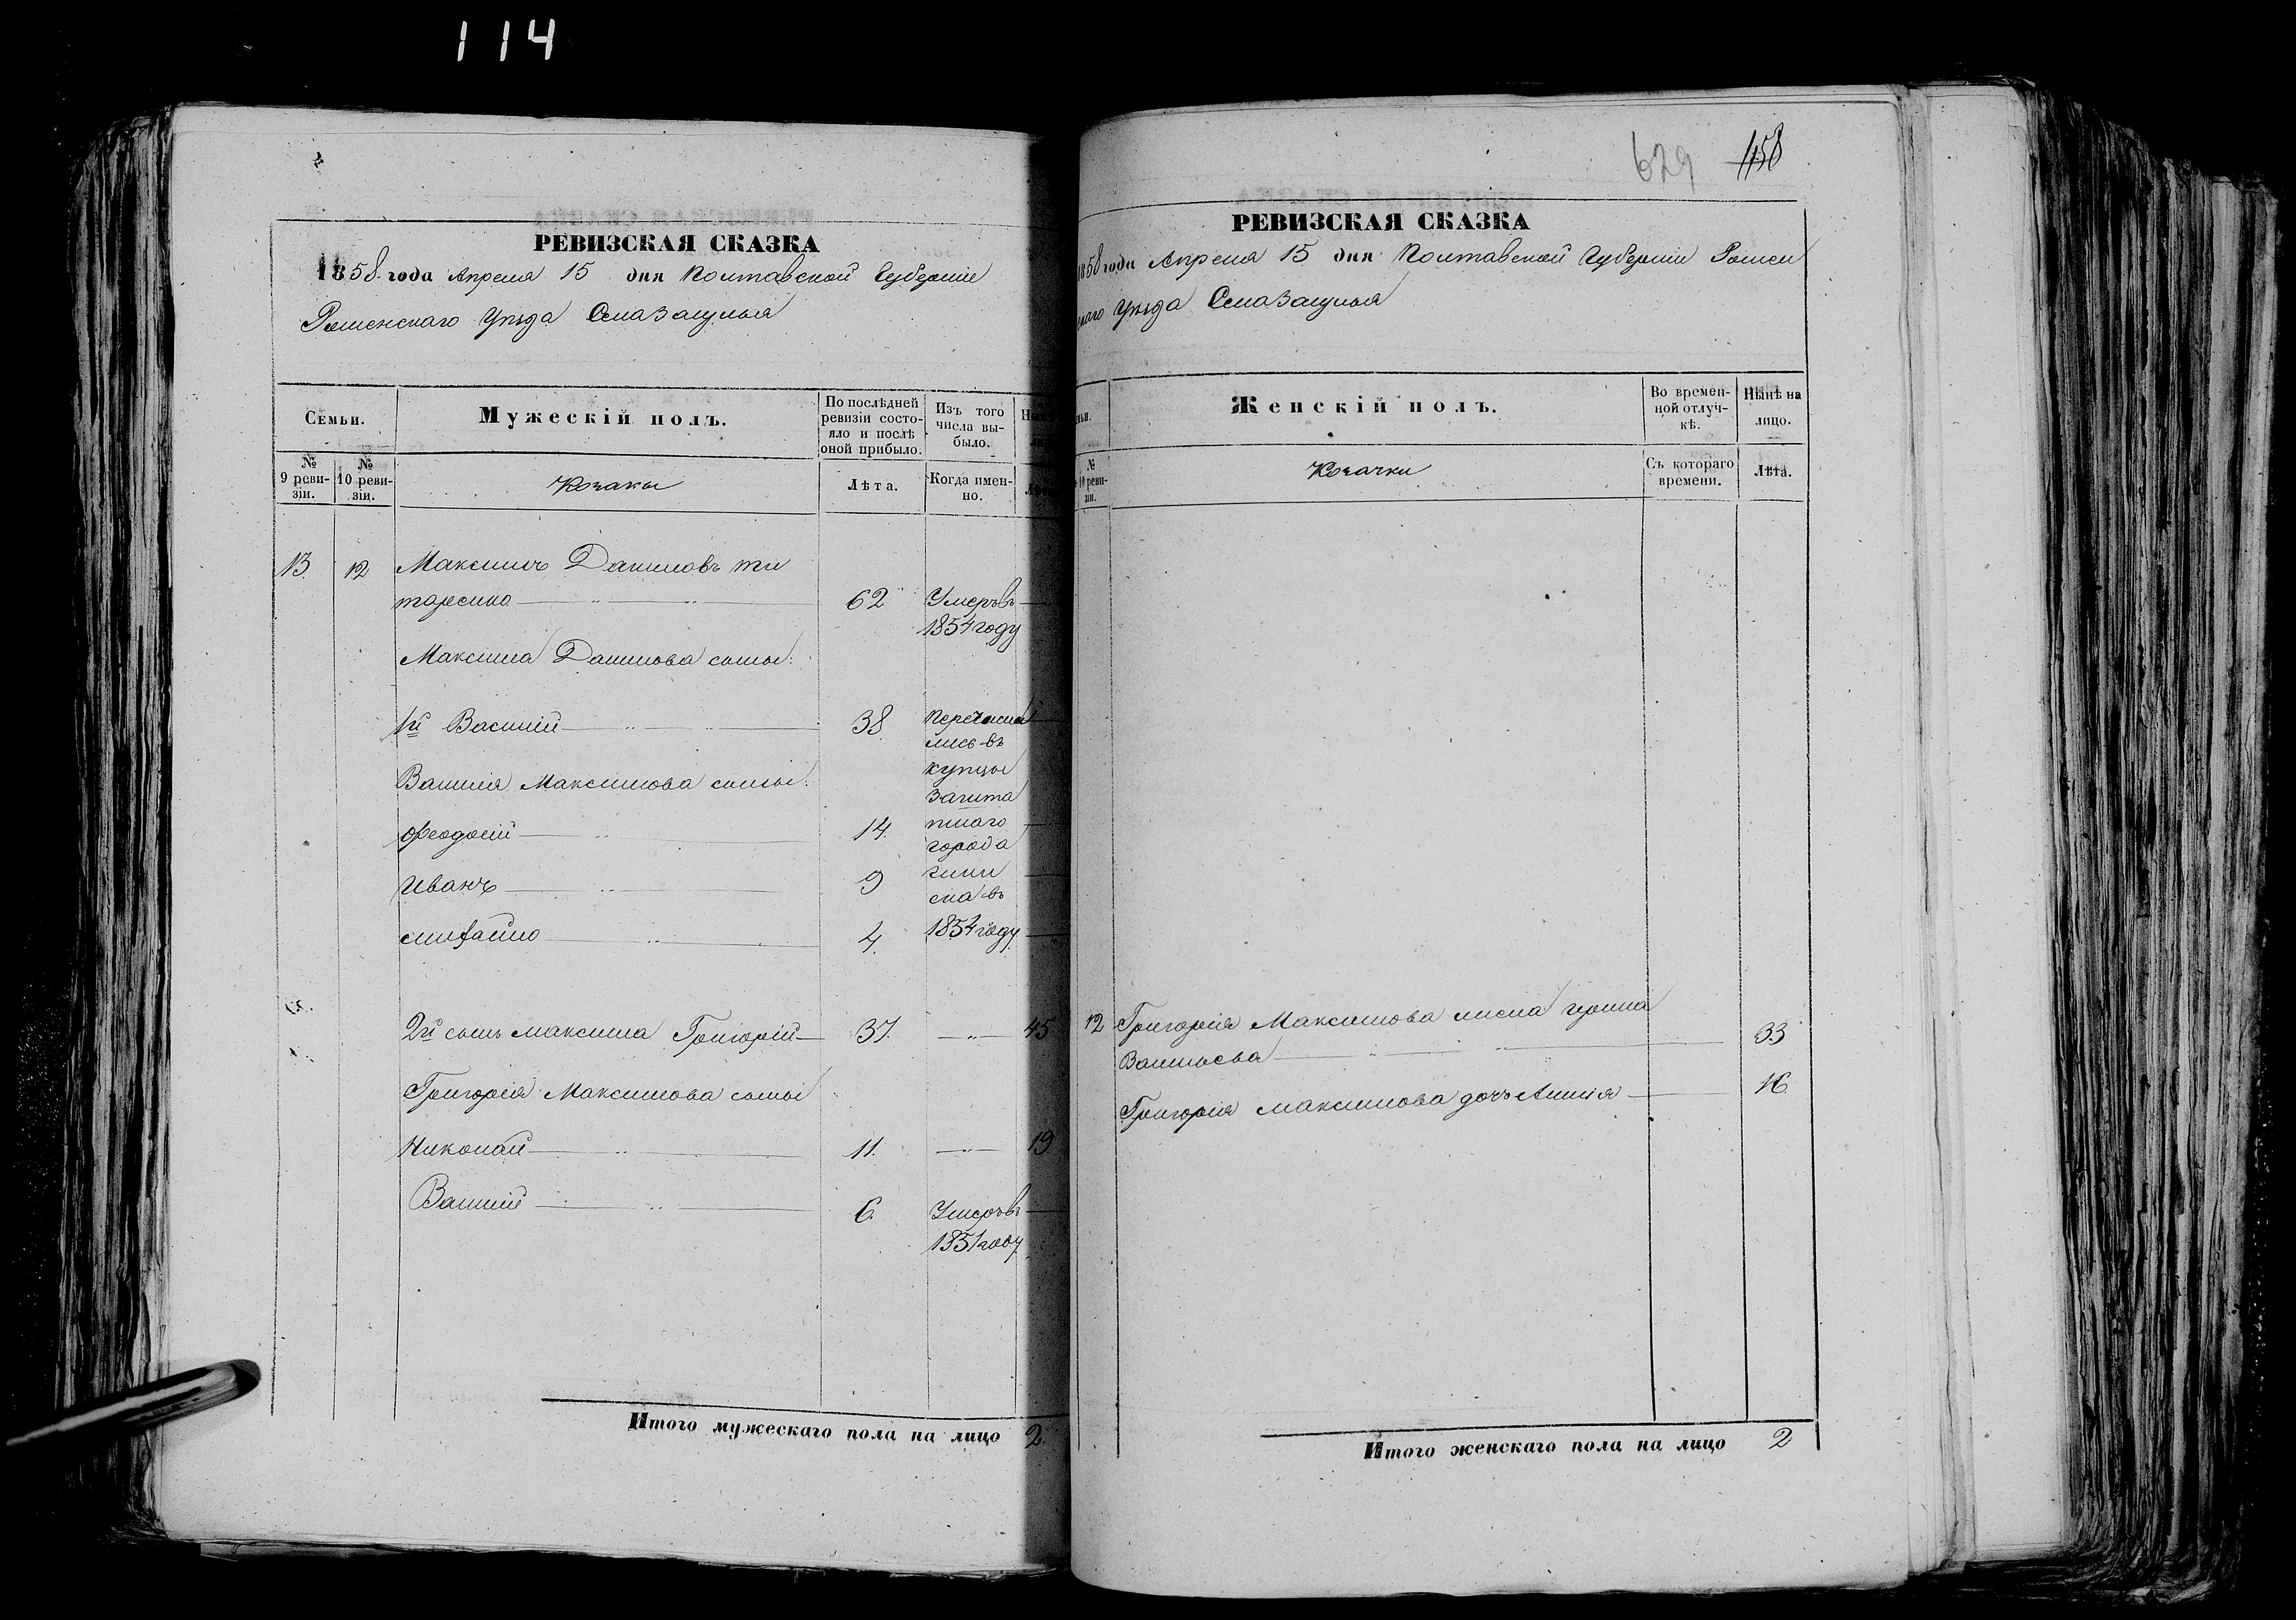 114
РЕВИЗСКАЯ СКАЗКА
1858 года Апреля 15 дня Полтавской Губерніи
Роменскаго Уѣзда Села Засулья
Семьи.
Мужескій полъ.
По послѣдней ревизіи состояло и послѣ оной прибыло.
Изъ того числа выбыло.
№ 9 ревизіи.
№ 10 ревизіи.
Козаки
Лѣта.
Когда именно.
13 12 Максимъ Даниловъ ти
таренко 62 Умеръ въ
1854 году
Максима Данилова сыны:
1й Василій 38 Перечисли
лись въ
Василія Максимова сыны: купцы
зашта
Феодосій 14. тнаго
города
Иванъ 9
на въ
Михайло 4. 1854 году
2й сынъ Максима Григорій 37. 45
Григорія Максимова сыны
Николай 11. 19
Василій 6. Умеръ въ
1851 году
Итого мужескаго пола на лицо 2.
629 458
РЕВИЗСКАЯ СКАЗКА
1858 года Апреля 15 дня Полтавской Губерніи Ромен
скаго Уѣзда Села Засулья
Женскій полъ.
Во временной отлучкѣ.
Нынѣ на лицо.
№ 10 ревизіи.
Козачки
Съ котораго времени.
Лѣта.
12 Григорія Максимова жена
Васильева 33
Григорія Максимова дочь 16
Итого женскаго пола на лицо 2